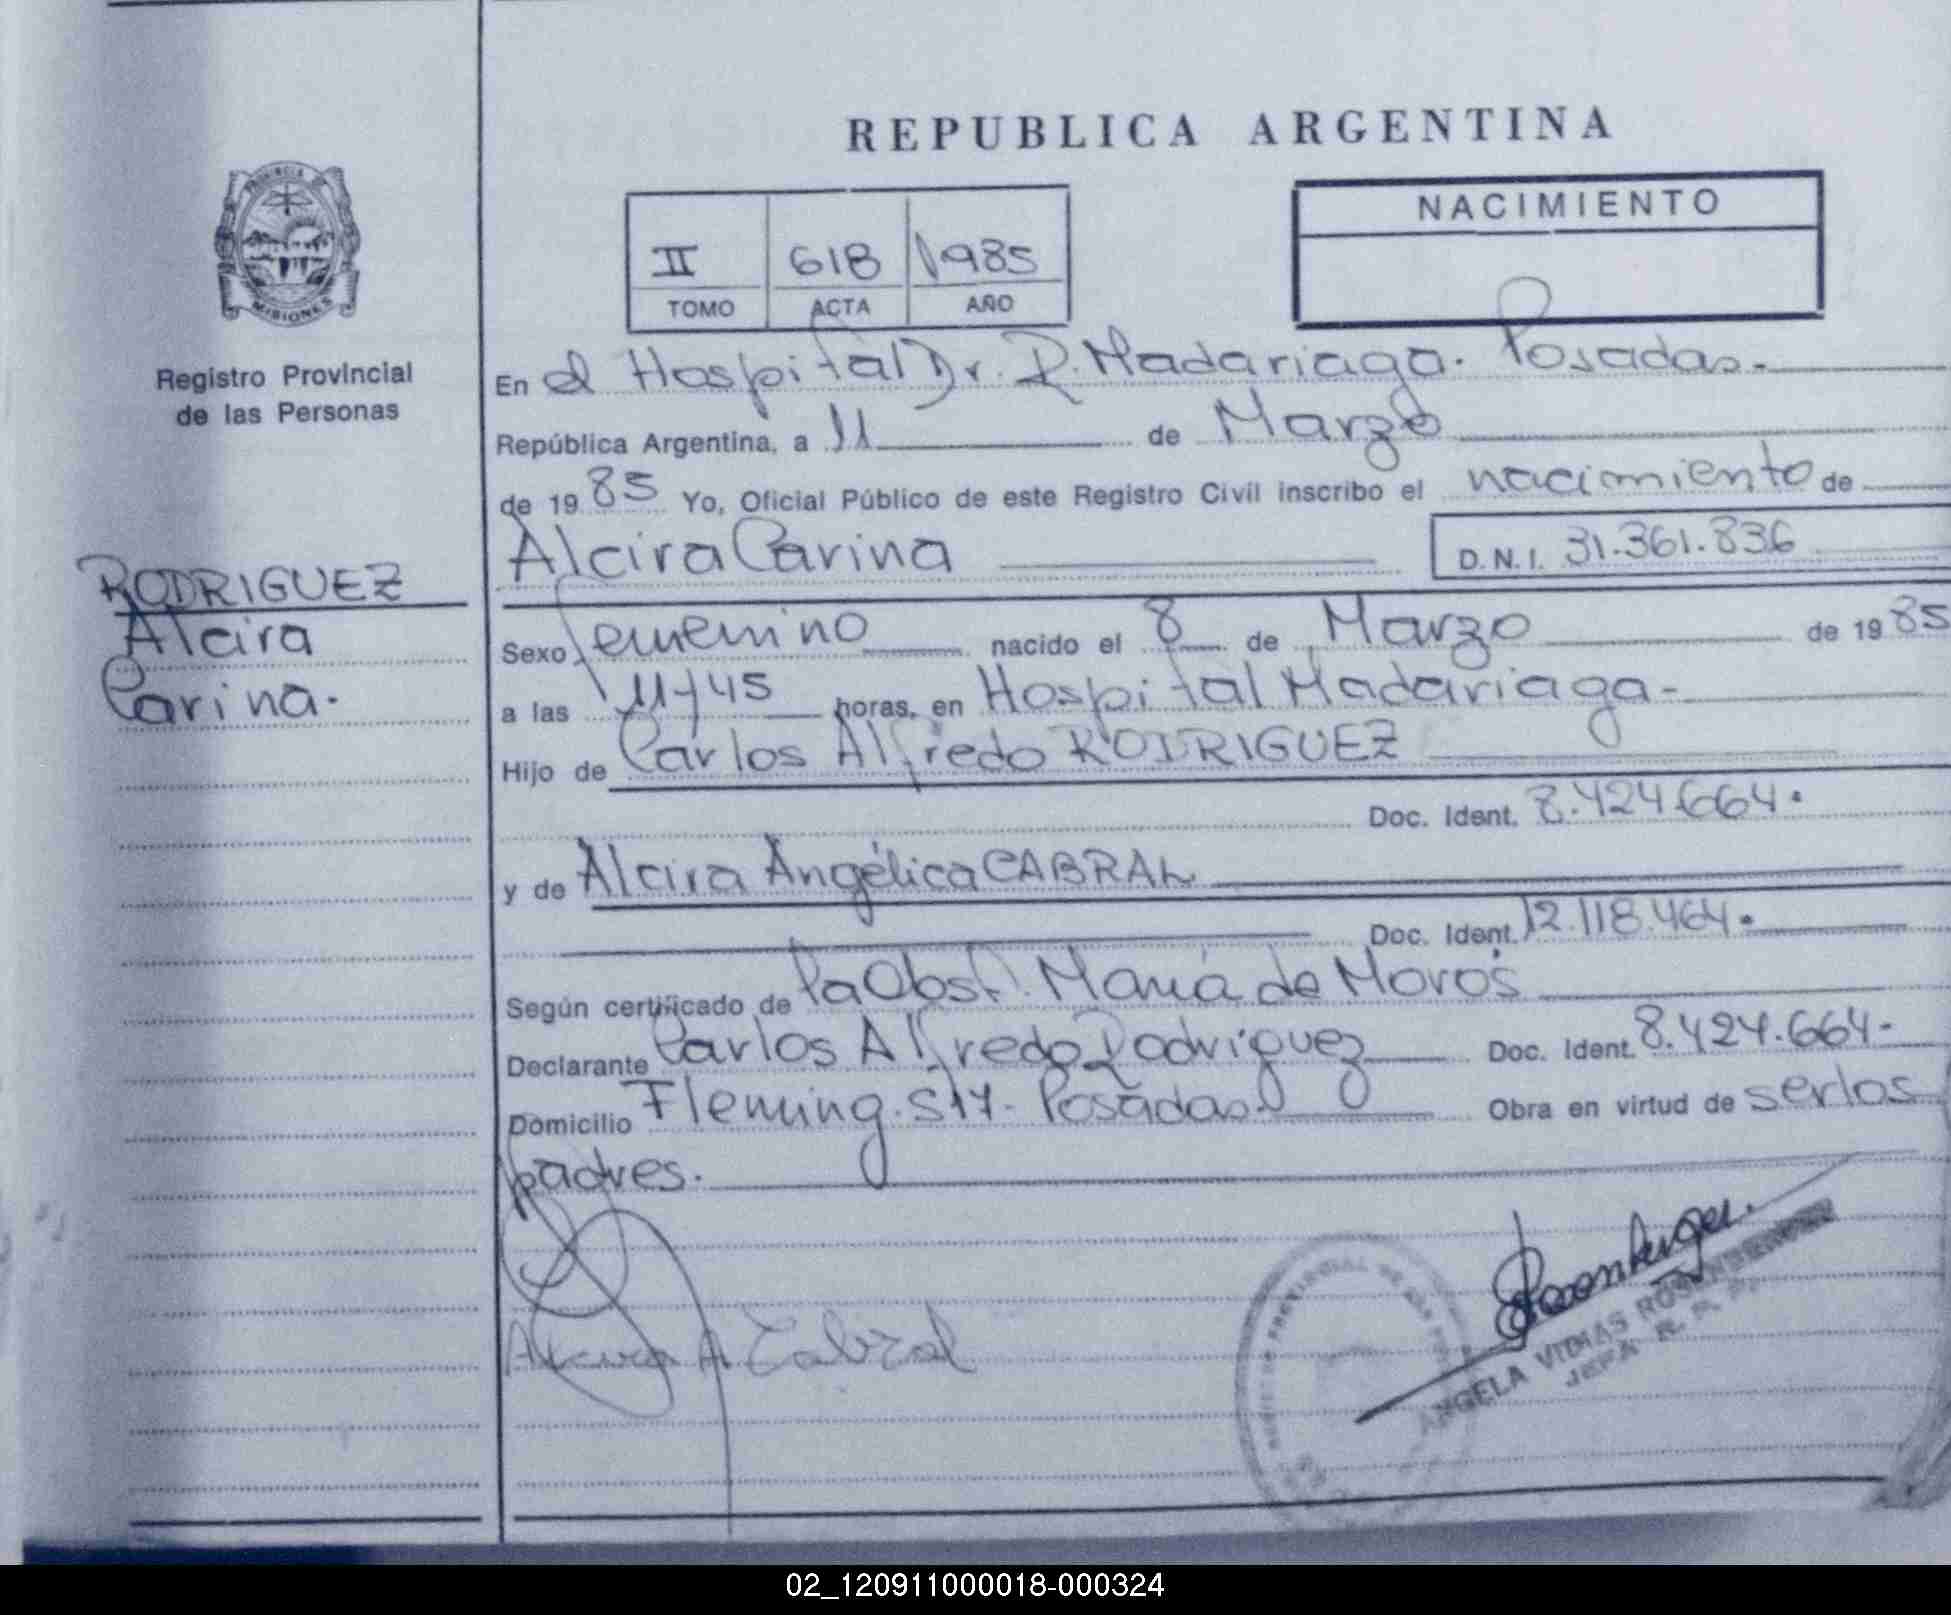 REPUBLICA ARGENTINA
PROVINCIA DE
MISIONES
Registro Provincial
de las Personas
II 618 1985
TOMO ACTA AÑO
NACIMIENTO
En el Hospital Dr. R. Madariaga. Posadas.-
República Argentina, a 11 de Marzo
de 1985 Yo, Oficial Público de este Registro Civil inscribo el nacimiento de
Alcira Carina D.N.I. 31.361.836
RODRIGUEZ
Alcira
Carina.
Sexo femenino nacido el 8 de Marzo de 1985
a las 11 y 45 horas, en Hospital Madariaga-
Hijo de Carlos Alfredo RODRIGUEZ
Doc. Ident. 8.424.664.
y de Alcira Angélica CABRAL
Doc. Ident. 12.118.464.
Según certificado de la Obst. María de Moros
Declarante Carlos Alfredo Rodriguez Doc. Ident. 8.424.664-
Domicilio Fleming. S/Nº- Posadas.- Obra en virtud de ser los
padres.
Alcira A Cabral
ANGELA VIDMAS ROSENBERGER
JEFA R. P. P.
02_120911000018-000324